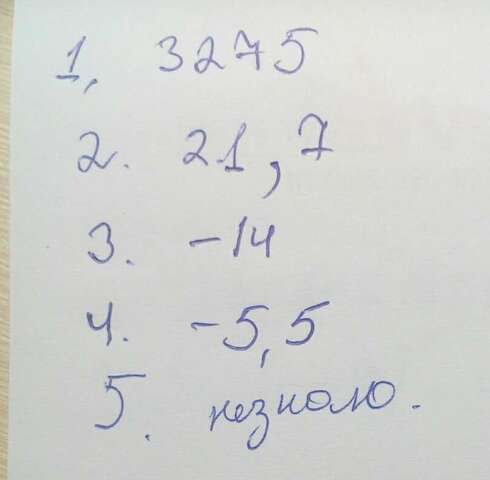 1. 3275
2. 21,7
3. -14
4. -5,5
5. незнаю.